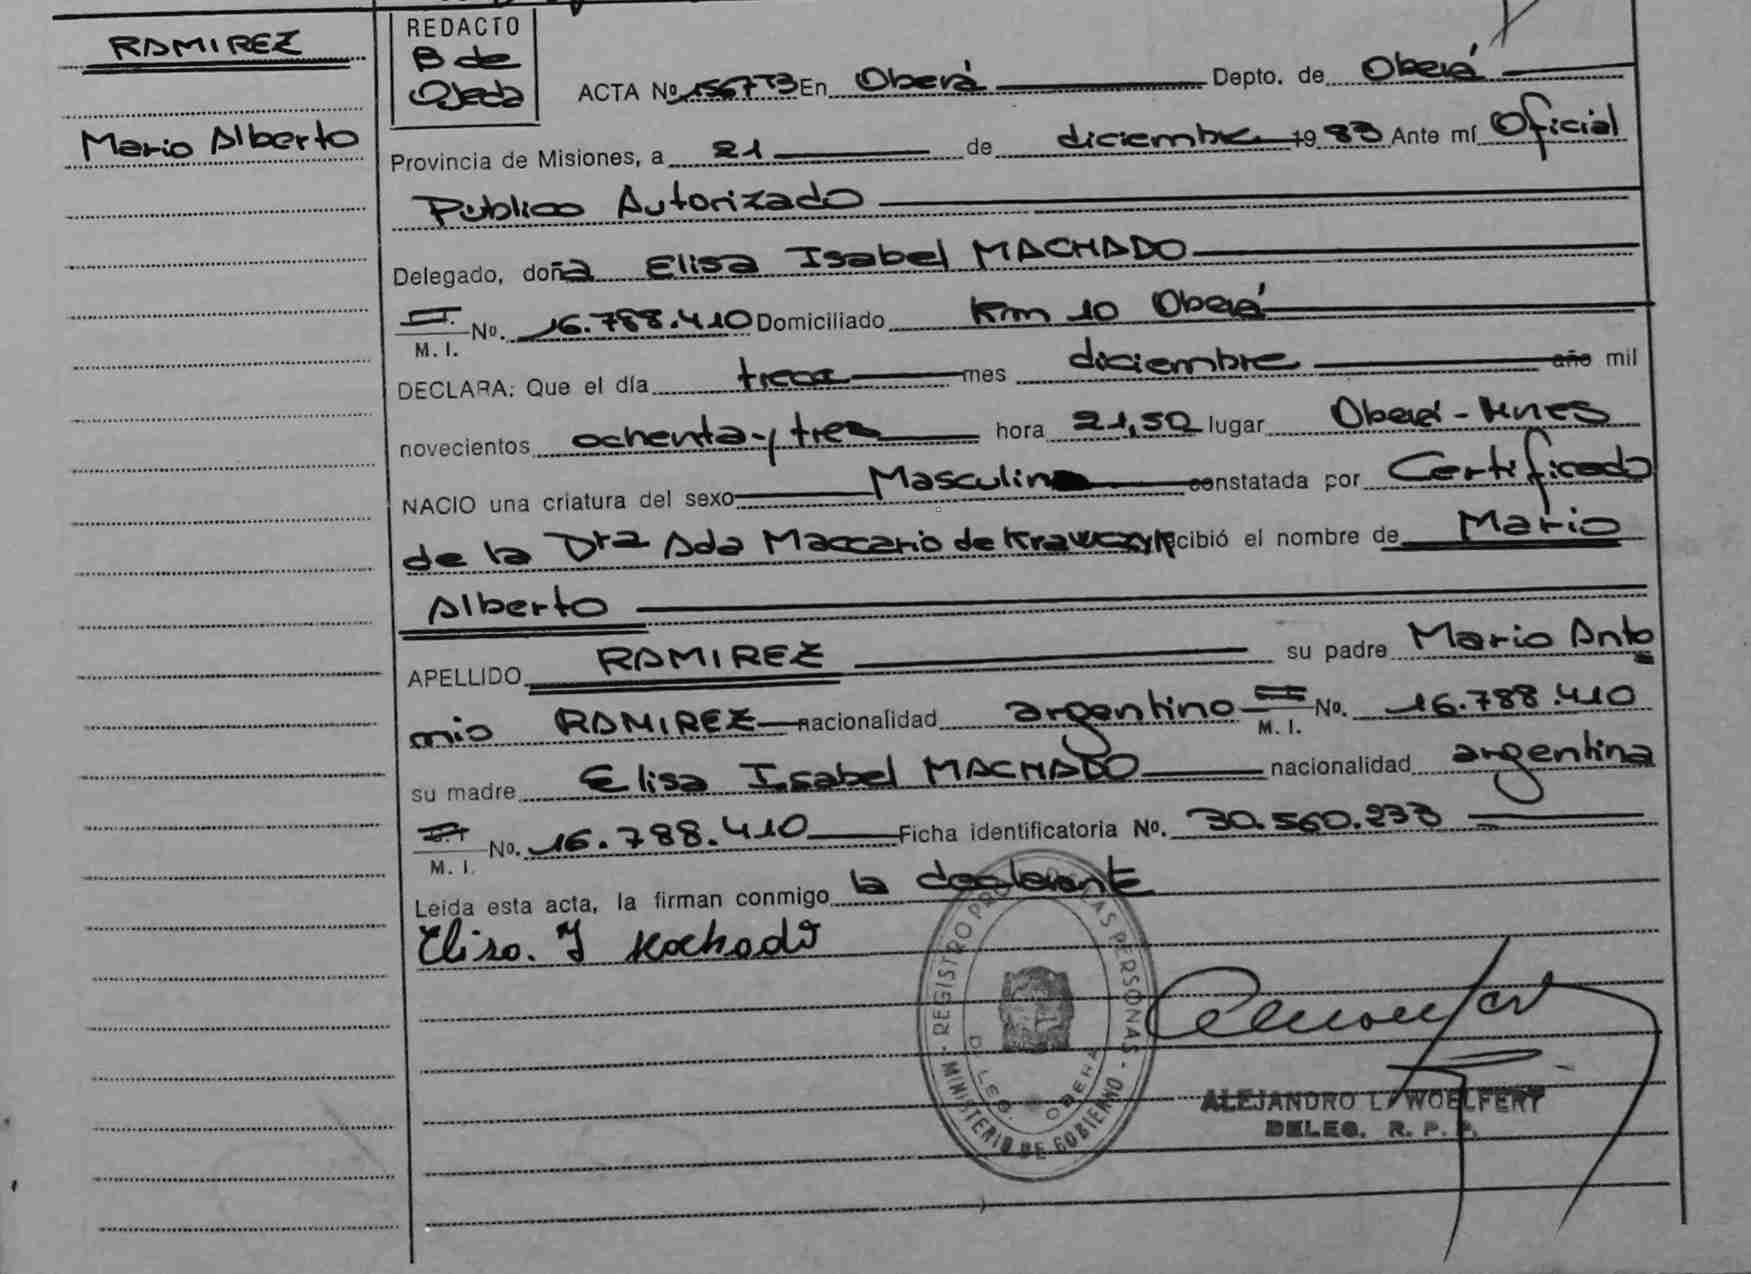 RAMIREZ
Mario Alberto
REDACTO
B de
Ojeda
ACTA Nº 1567 T3 En Oberá Depto. de Oberá
Provincia de Misiones, a 21 de diciembre 1983 Ante mí Oficial
Público Autorizado
Delegado, doña Elisa Isabel MACHADO
M. I. Nº. 16.788.410 Domiciliado Km 10 Oberá
DECLARA: Que el día trece mes diciembre año mil
novecientos ochenta y tres hora 21,50 lugar Oberá - Mnes
NACIO una criatura del sexo Masculino constatada por Certificado
de la Dra Ada Maccario de Krawczyk recibió el nombre de Mario
Alberto
APELLIDO RAMIREZ su padre Mario Anto
nio RAMIREZ nacionalidad argentino M. I. Nº. 16.788.410
su madre Elisa Isabel MACHADO nacionalidad argentina
M. I. Nº. 16.788.410 Ficha identificatoria Nº. 30.560.233
Leída esta acta, la firman conmigo la declarante
Elisa. I Machado
REGISTRO PROV. DE LAS PERSONAS
MINISTERIO DE GOBIERNO
DELEG. OBERA
ALEJANDRO L. WOELFERT
DELEG. R. P. P.